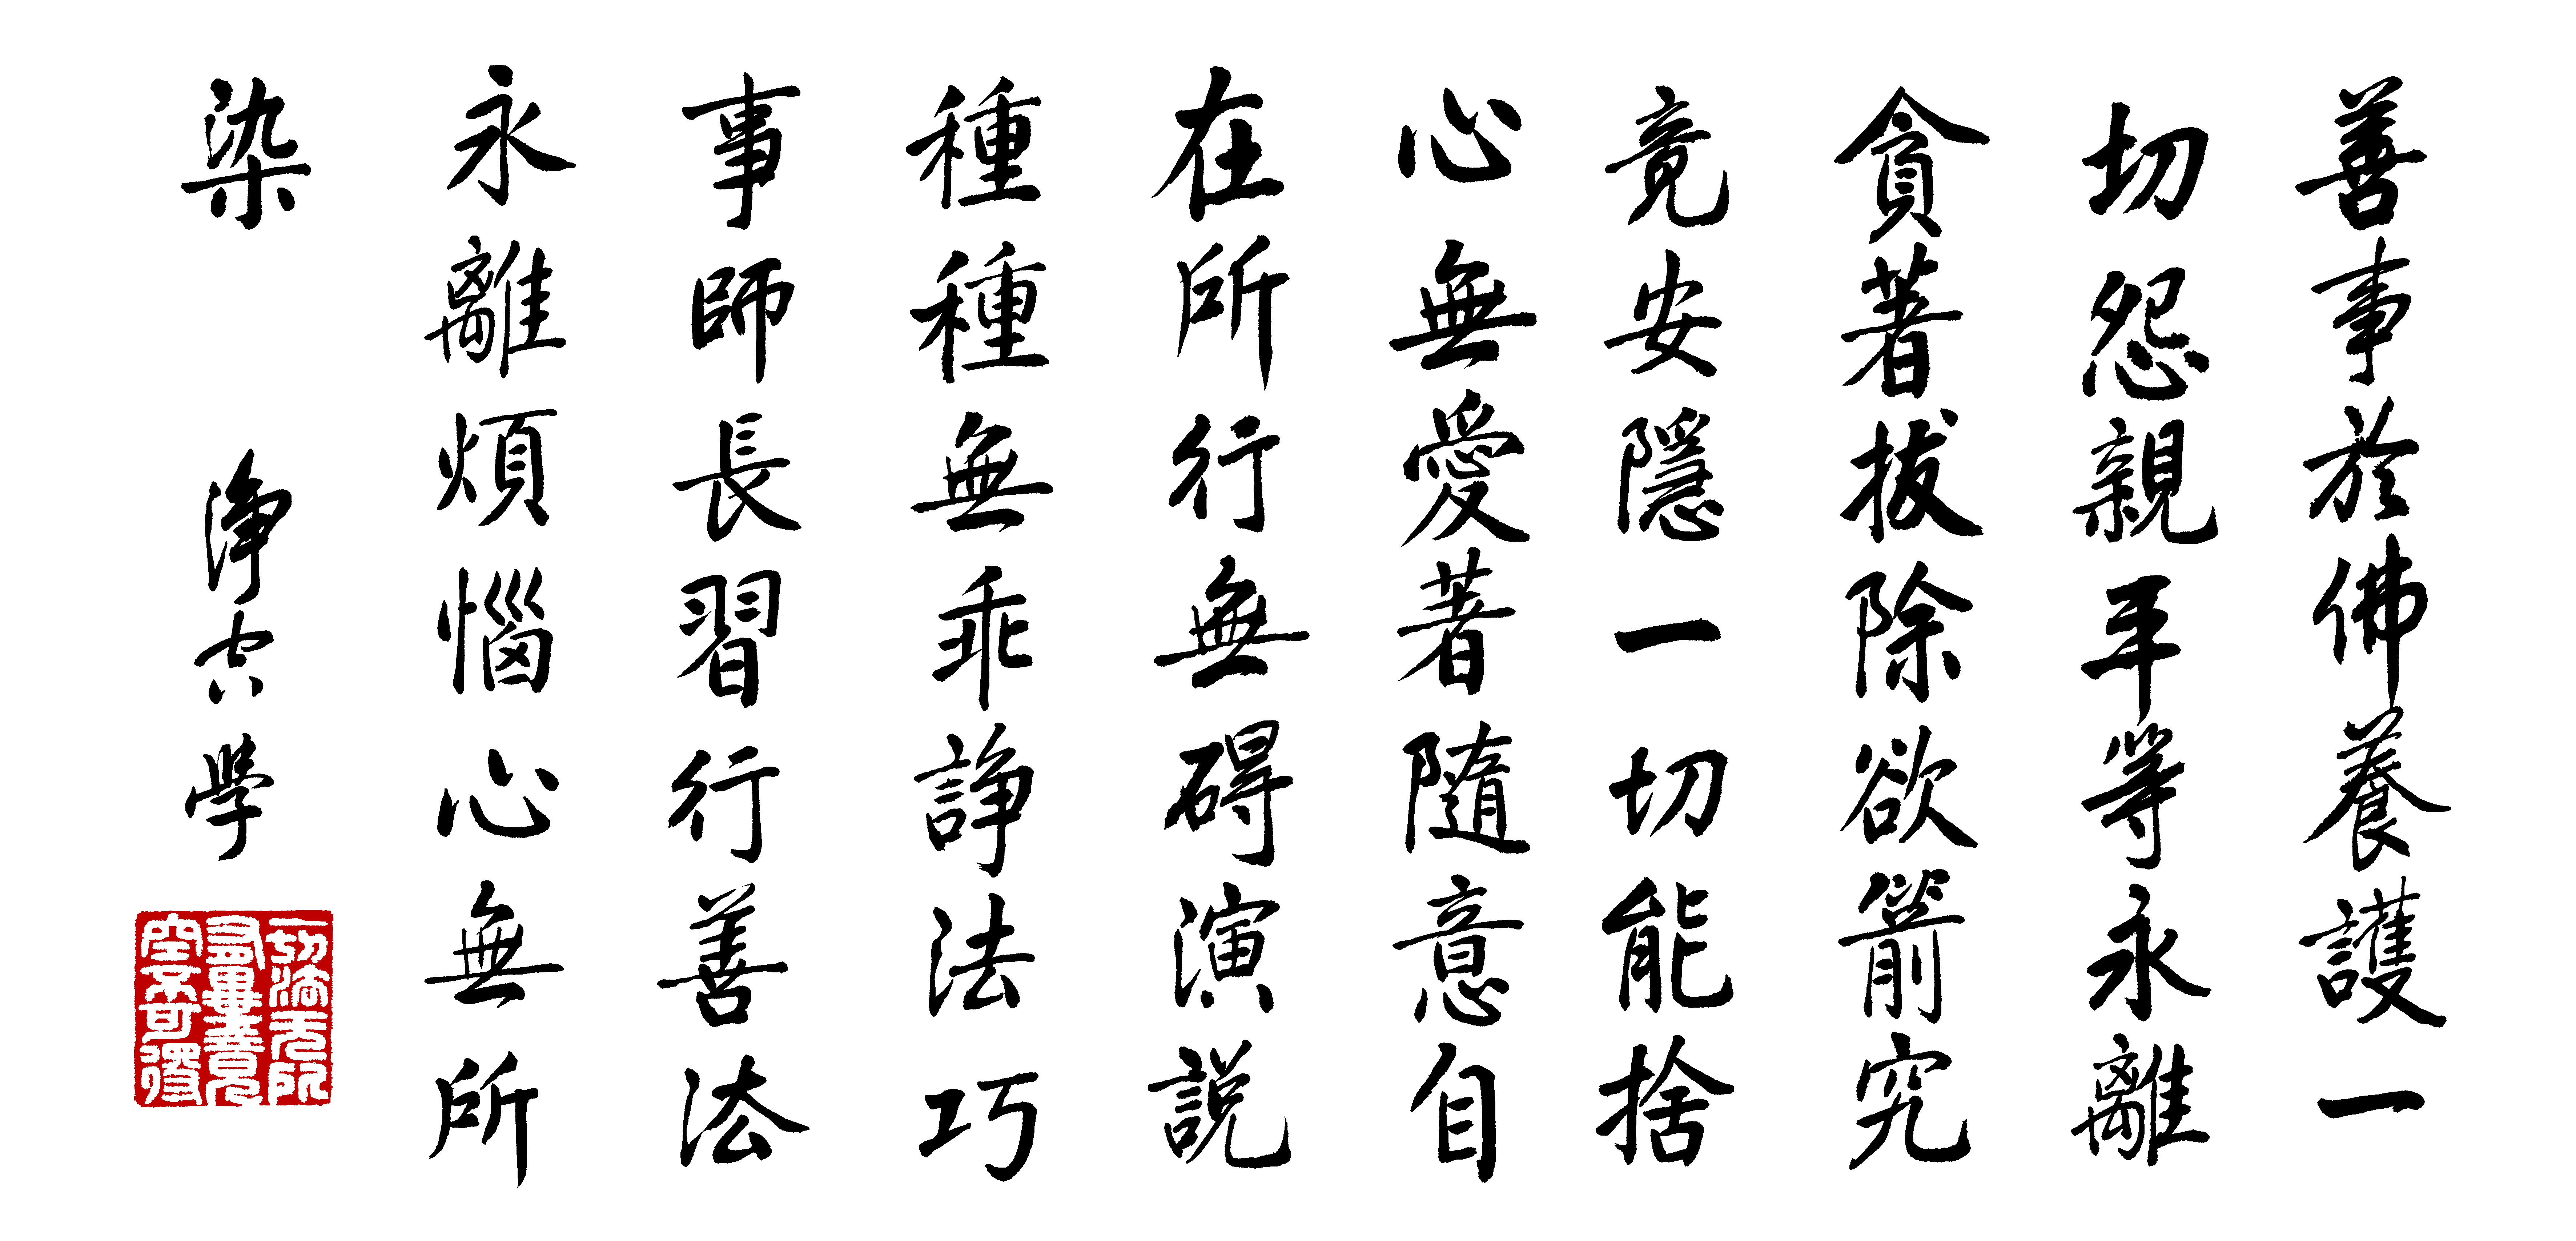 善事於佛養護一
切怨親平等永離
貪著拔除欲箭究
竟安隱一切能捨
心無愛著隨意自
在所行無碍演説
種種無乖諍法巧
事師長習行善法
永離煩惱心無所
染
淨空學
一切法无所
有畢竟
空不可得